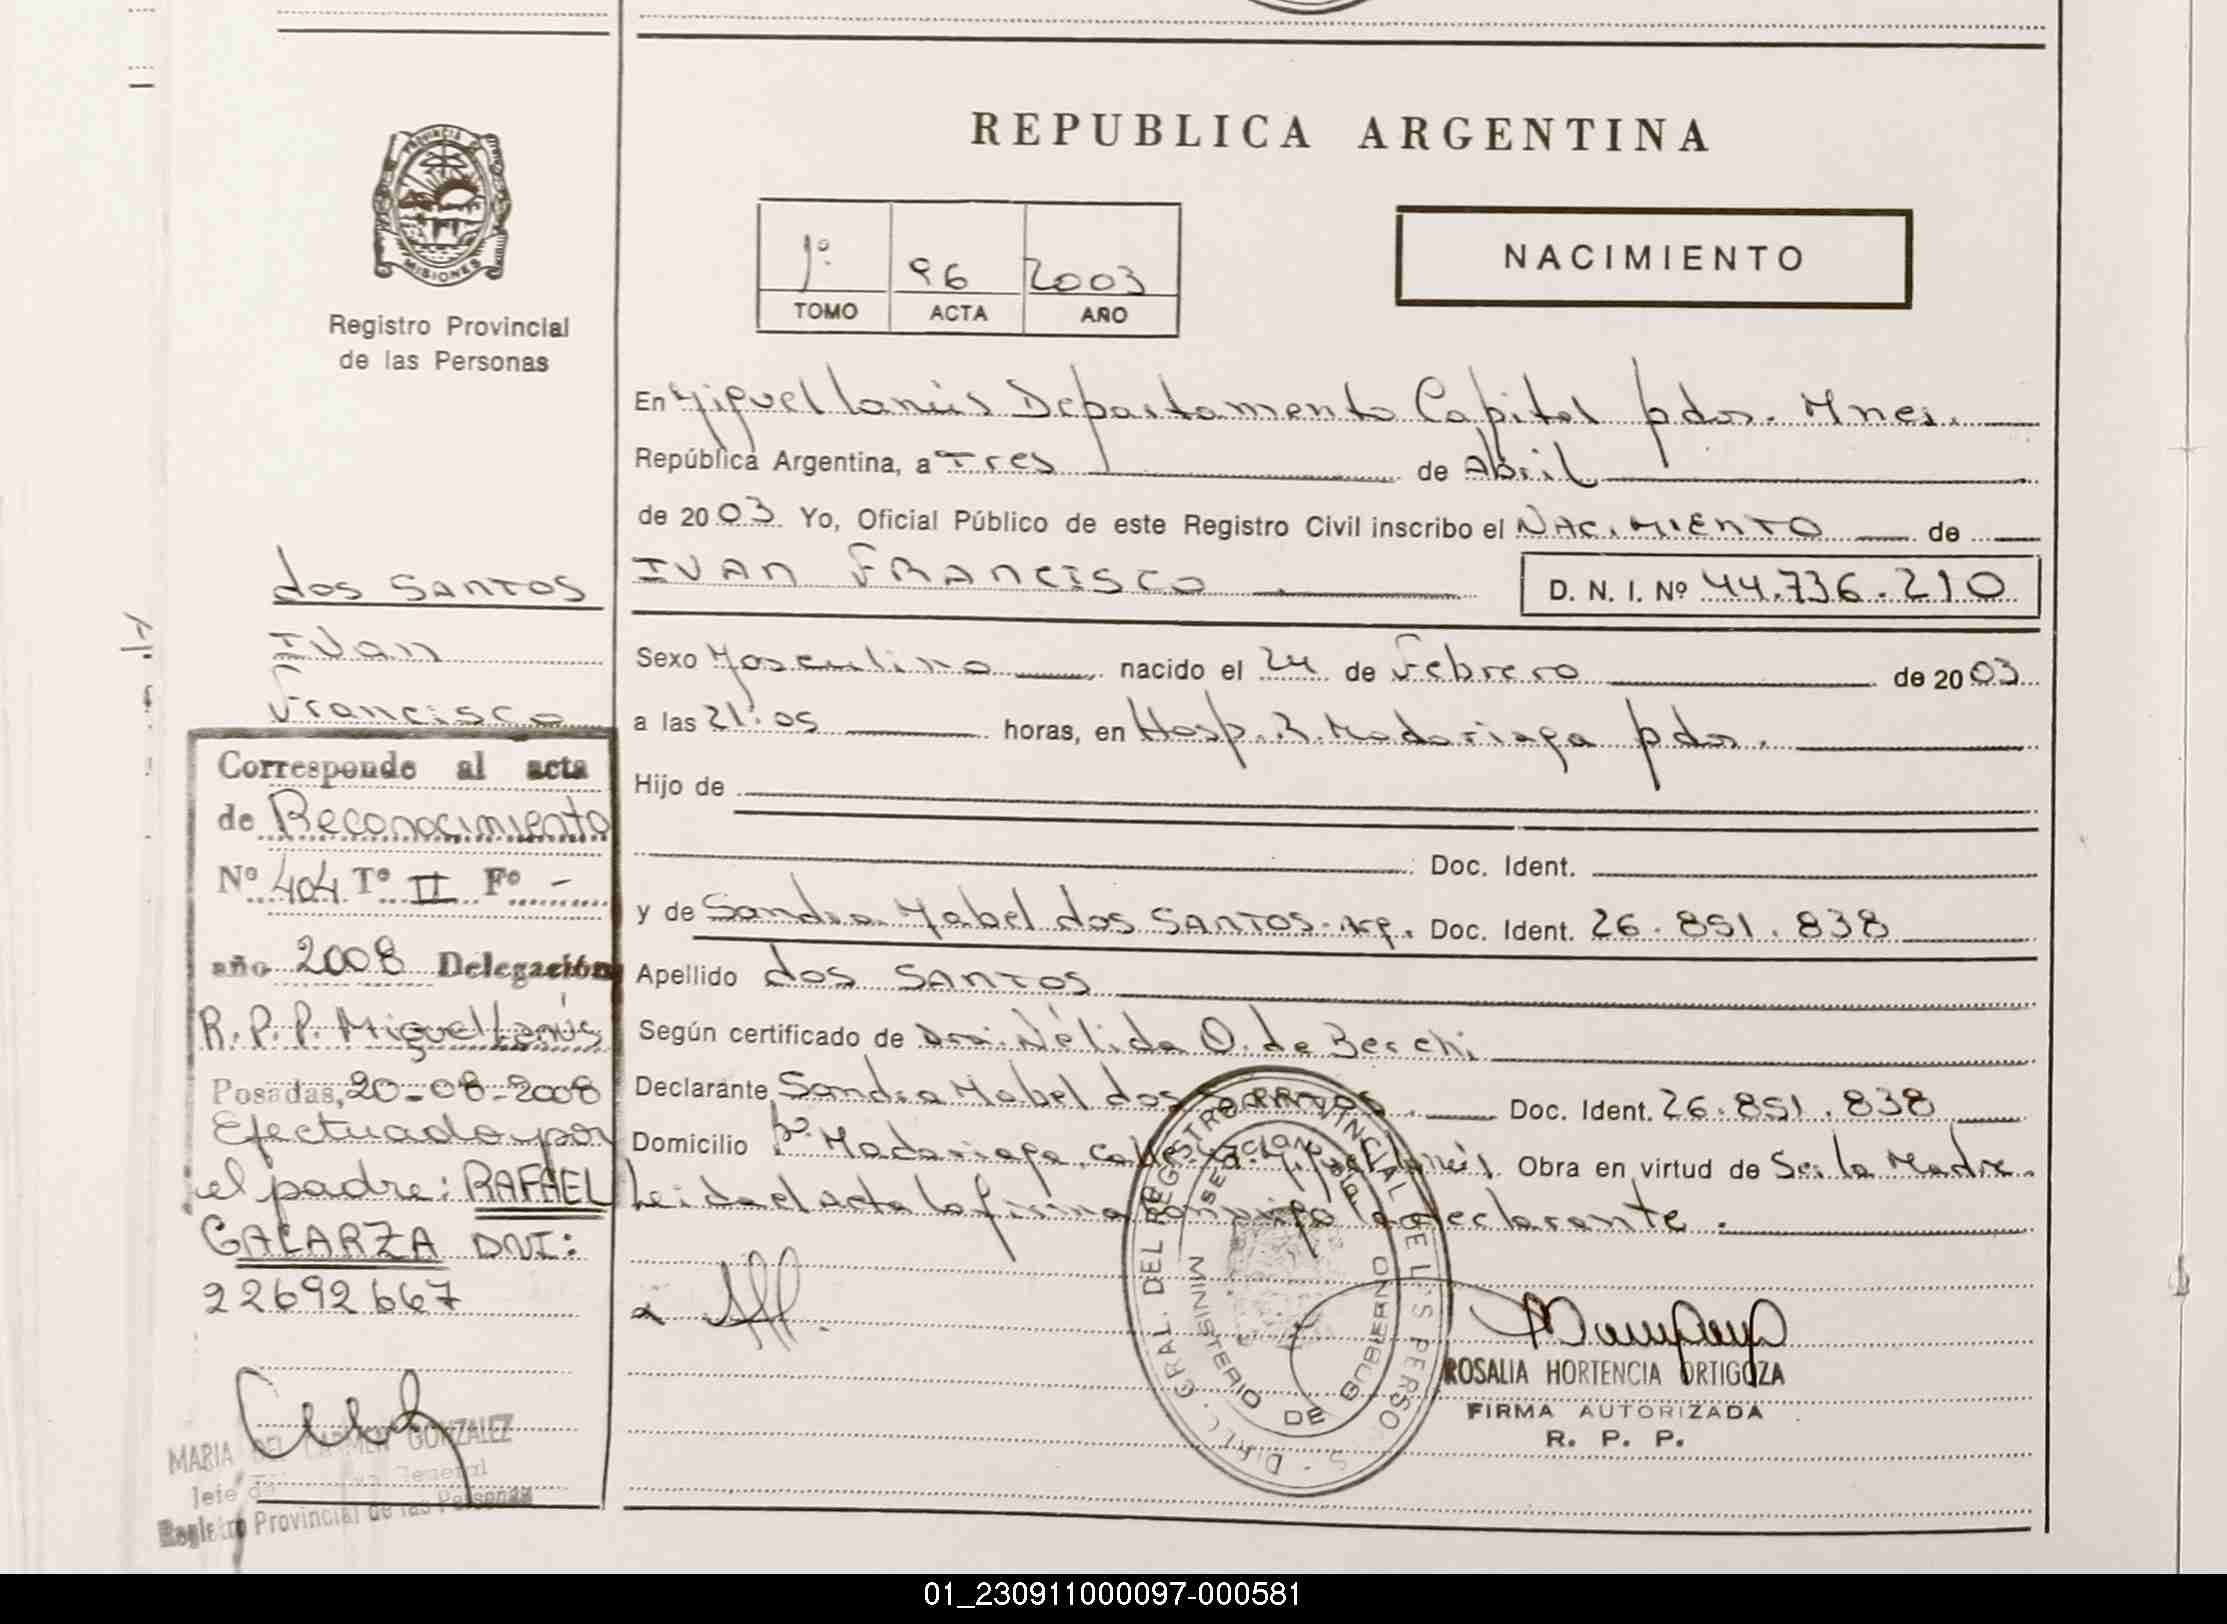 REPUBLICA ARGENTINA
PROVINCIA DE
MISIONES
Registro Provincial
de las Personas
1º 96 2003
TOMO ACTA AÑO
NACIMIENTO
En Miguel Lanús Departamento Capital pdas. Mnes.
República Argentina, a Tres de Abril
de 2003. Yo, Oficial Público de este Registro Civil inscribo el NACIMIENTO de
IVAN FRANCISCO D. N. I. Nº 44.736.210
Sexo Masculino nacido el 24 de Febrero de 2003
a las 21:05 horas, en Hosp. R. Madariaga pdas.
Hijo de
Doc. Ident.
y de Sandra Mabel dos SANTOS. Arg. Doc. Ident. 26.851.838
Apellido dos SANTOS
Según certificado de Dra. Nélida O. de Berchi
Declarante Sandra Mabel dos SANTOS. Doc. Ident. 26.851.838
Domicilio Bº Madariaga, Miguel Lanús. Obra en virtud de Ser la Madre.
Leida el acta la firma conmigo la declarante.
DIREC. GRAL. DEL REGISTRO PROVINCIAL DE LAS PERSONAS
MINISTERIO DE GOBIERNO
ROSALIA HORTENCIA ORTIGOZA
FIRMA AUTORIZADA
R. P. P.
dos SANTOS
Ivan
Francisco
Corresponde al acta
de Reconocimiento
Nº 404 Tº II Fº -
año 2008 Delegación
R.P.P. Miguel Lanús
Posadas, 20-08-2008
Efectuado por
el padre: RAFAEL
GALARZA DNI:
22692667
MARIA DEL CARMEN GONZALEZ
Jefe de General
Registro Provincial de las Personas
01_230911000097-000581